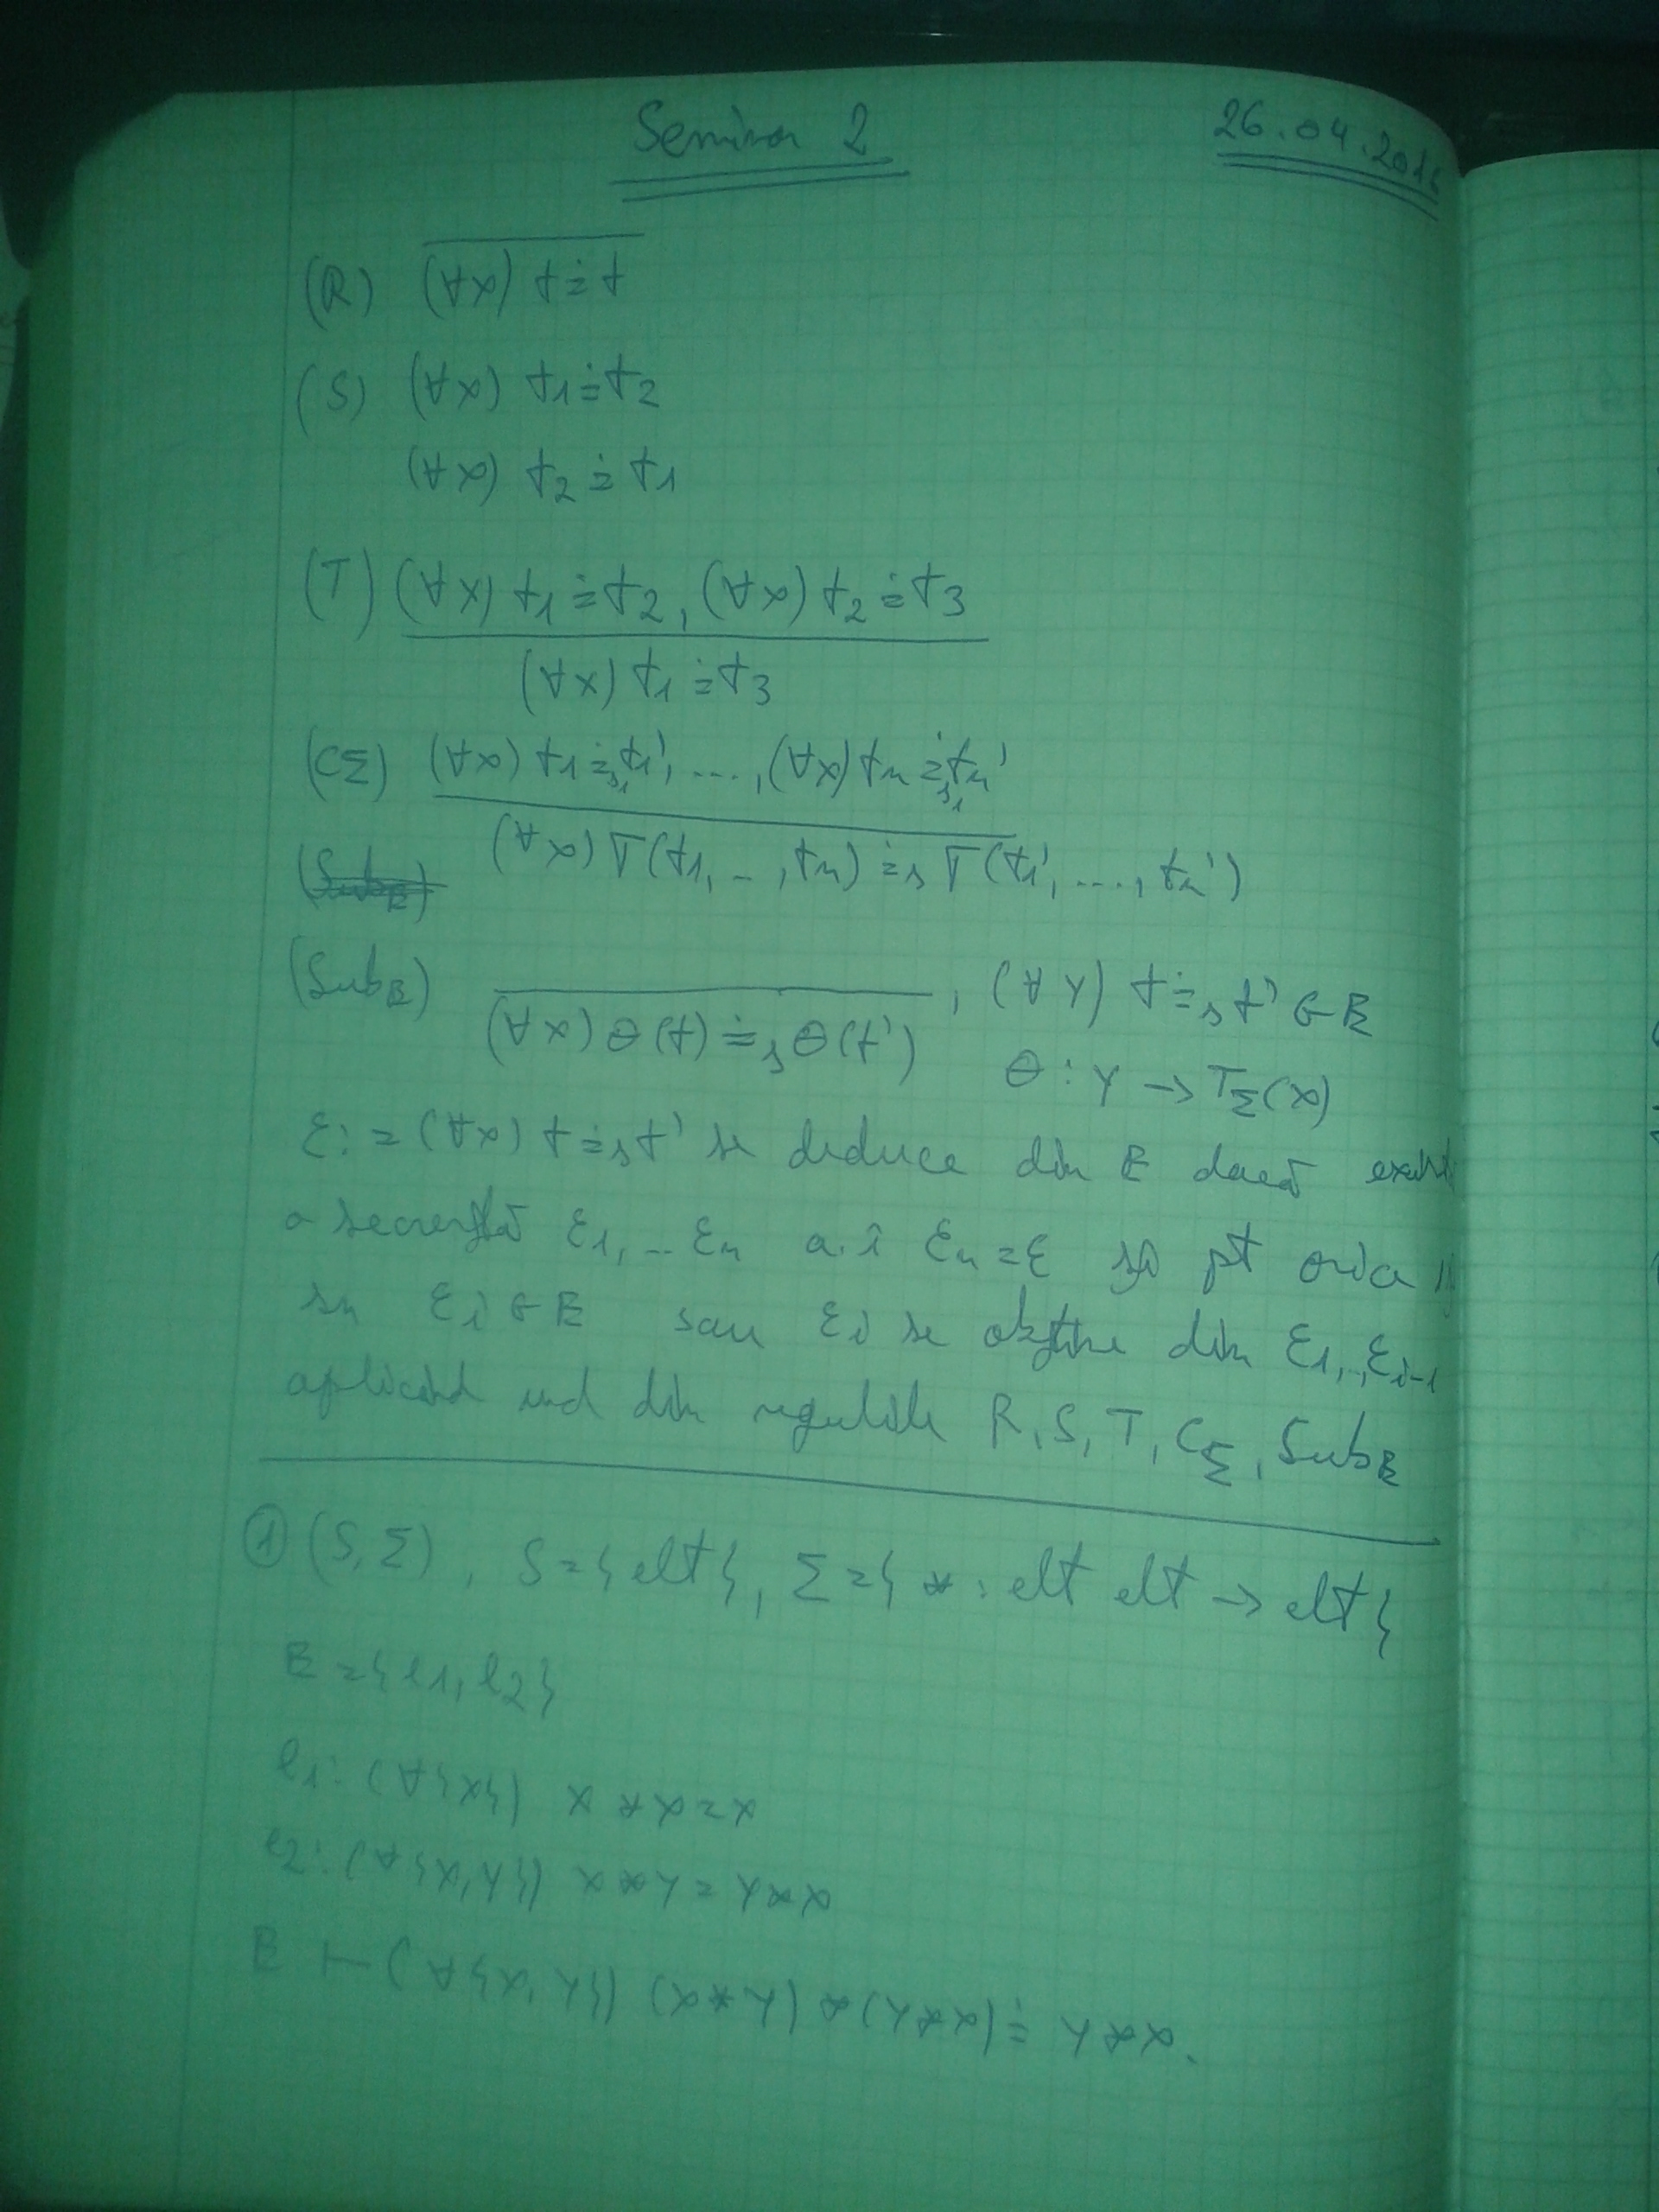 Seminar 2
26.04.201
(R) (∀X) t ≐ t
(S) (∀X) t1 ≐ t2
(∀X) t2 ≐ t1
(T) (∀X) t1 ≐ t2, (∀X) t2 ≐ t3
(∀X) t1 ≐ t3
(CΣ) (∀X) t1 ≐s1 t1', ..., (∀X) tn ≐s1 tn'
(∀X) σ(t1, .., tn) ≐s σ(t1', ..., tn')
(SubE)
(SubE) , (∀Y) t ≐s t' ∈ E
(∀X) θ(t) ≐s θ(t') θ : Y → TΣ(X)
ε: = (∀X) t ≐s t' se deduce din E dacă
o secvență ε1, .. εn a.î εn = ε și pt orice
εi ∈ E sau εi se obține din ε1,..,εi-1
aplicând din regulile R, S, T, CΣ, SubE
① (S, Σ), S = {elt}, Σ = {* : elt elt → elt}
E = {e1, e2}
e1: (∀{x}) x * x = x
e2: (∀{x,y}) x * y = y * x
E ⊢ (∀{x, y}) (x * y) * (y * x) ≐ y * x.